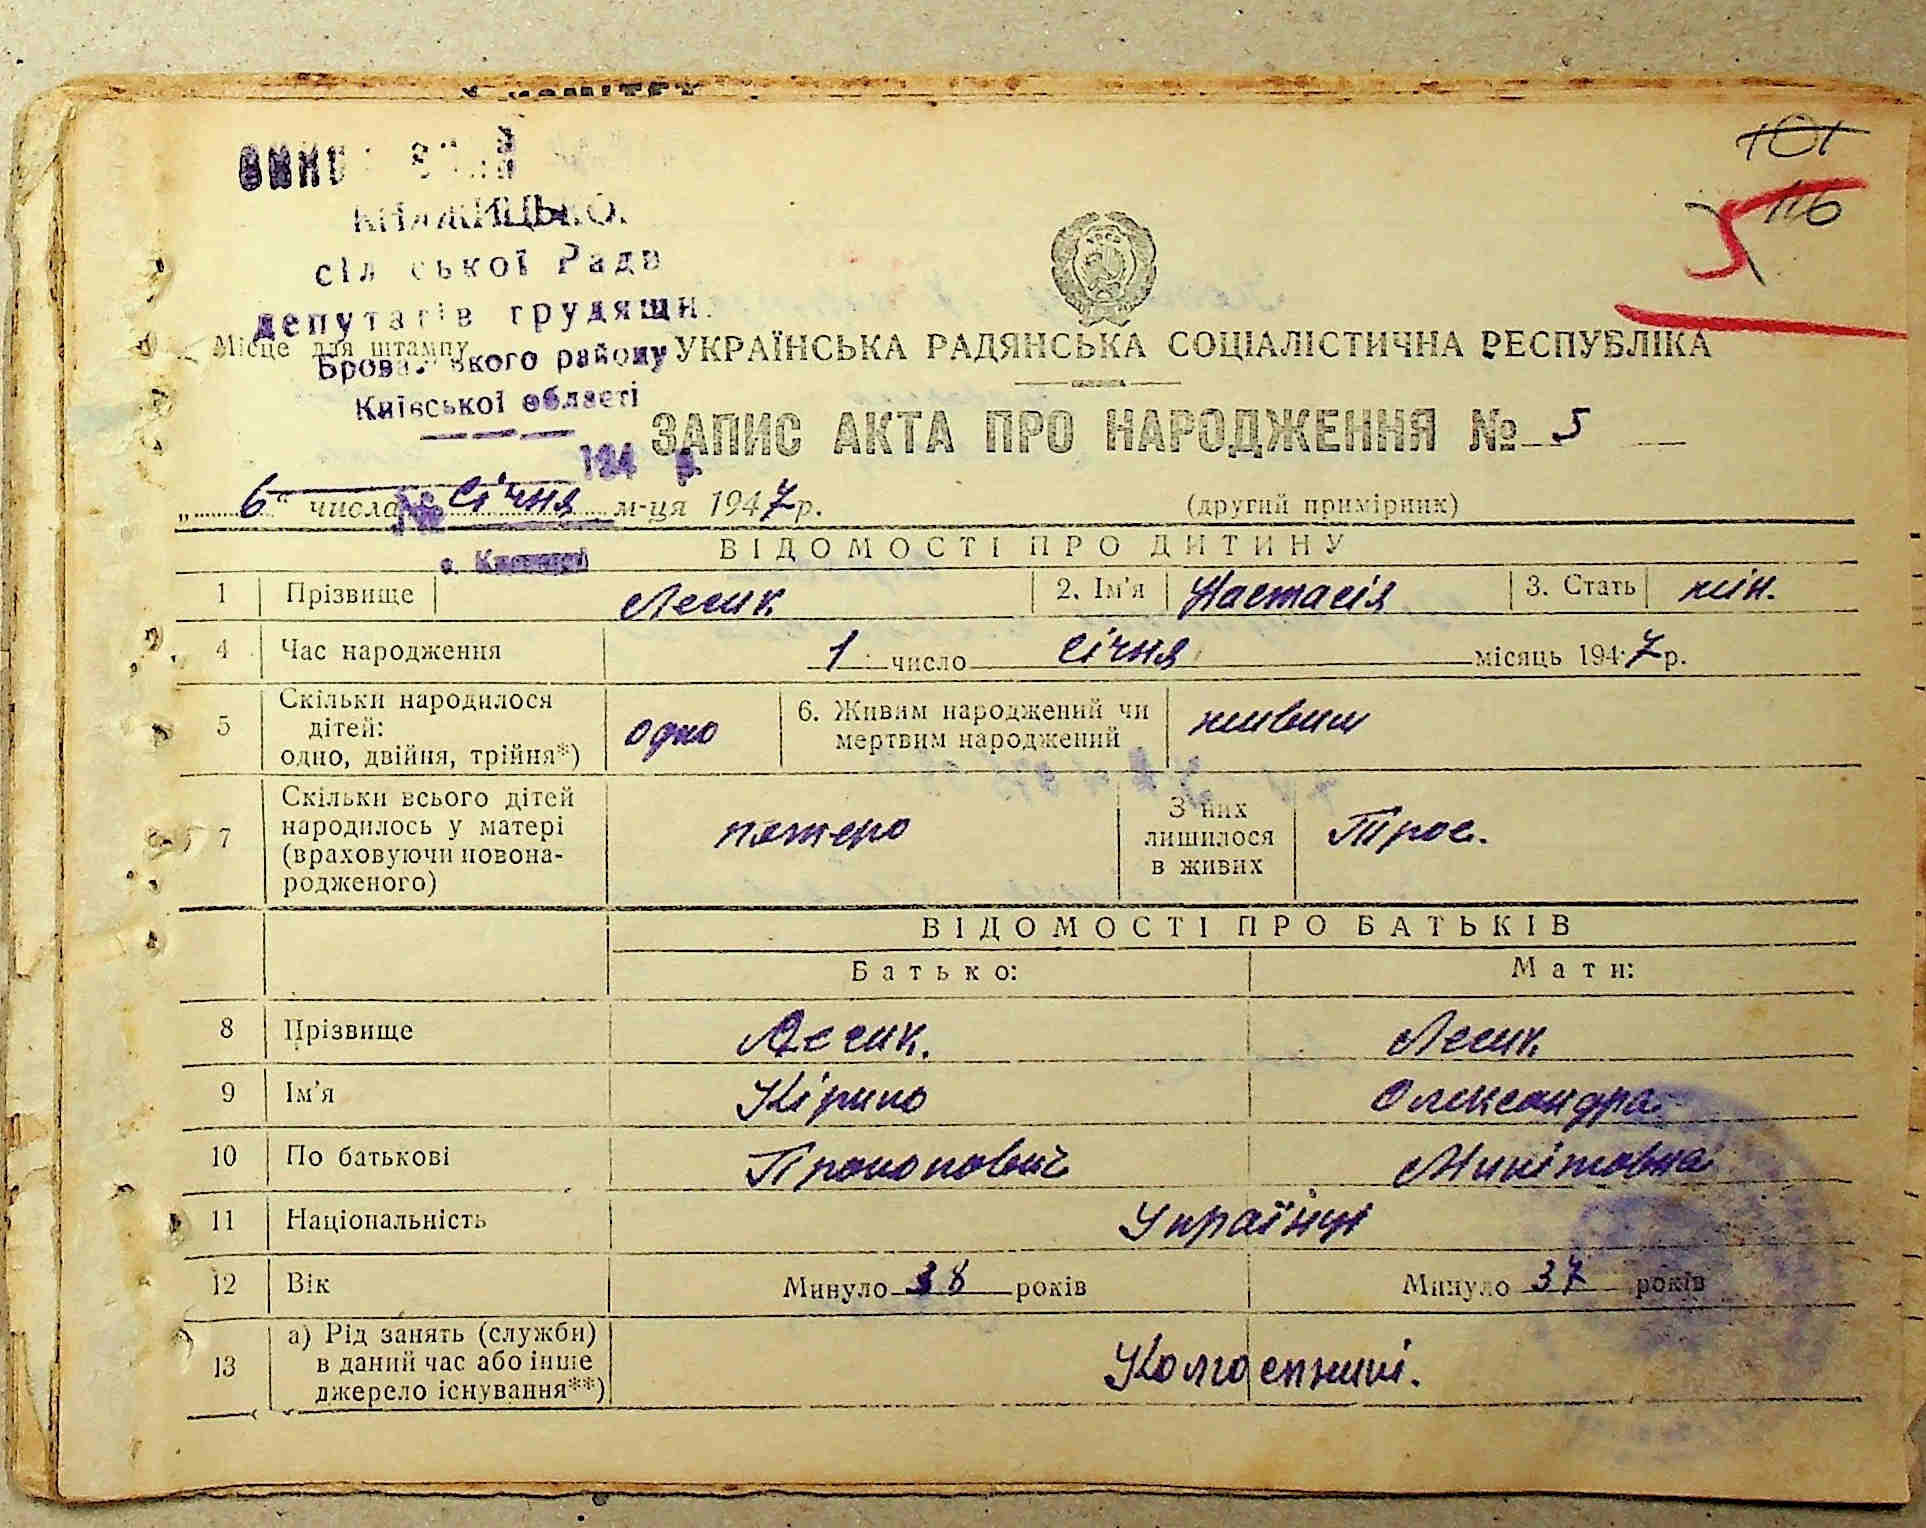 101
116
5
КНЯЖИЦЬКО
сільської Ради
депутатів трудящи
Броварського району
Київської області
Місце для штампу
УКРАЇНСЬКА РАДЯНСЬКА СОЦІАЛІСТИЧНА РЕСПУБЛІКА
ЗАПИС АКТА ПРО НАРОДЖЕННЯ № 5
194 р.
„ 6 “ числа січня м-ця 1947 р. (другий примірник)
№
ВІДОМОСТІ ПРО ДИТИНУ
1 Прізвище Лесик 2. Ім'я Настасія 3. Стать жін.
4 Час народження 1 число січня місяць 1947 р.
5 Скільки народилося дітей: одно, двійня, трійня*) одно 6. Живим народжений чи мертвим народжений живим
7 Скільки всього дітей народилось у матері (враховуючи новонародженого) пятеро З них лишилося в живих Троє.
ВІДОМОСТІ ПРО БАТЬКІВ
Батько: Мати:
8 Прізвище Лесик. Лесик
9 Ім'я Кірило Олександра
10 По батькові Прокопович Микітовна
11 Національність Українці
12 Вік Минуло 38 років Минуло 37 років
13 а) Рід занять (служби) в даний час або інше джерело існування**) Колгоспники.